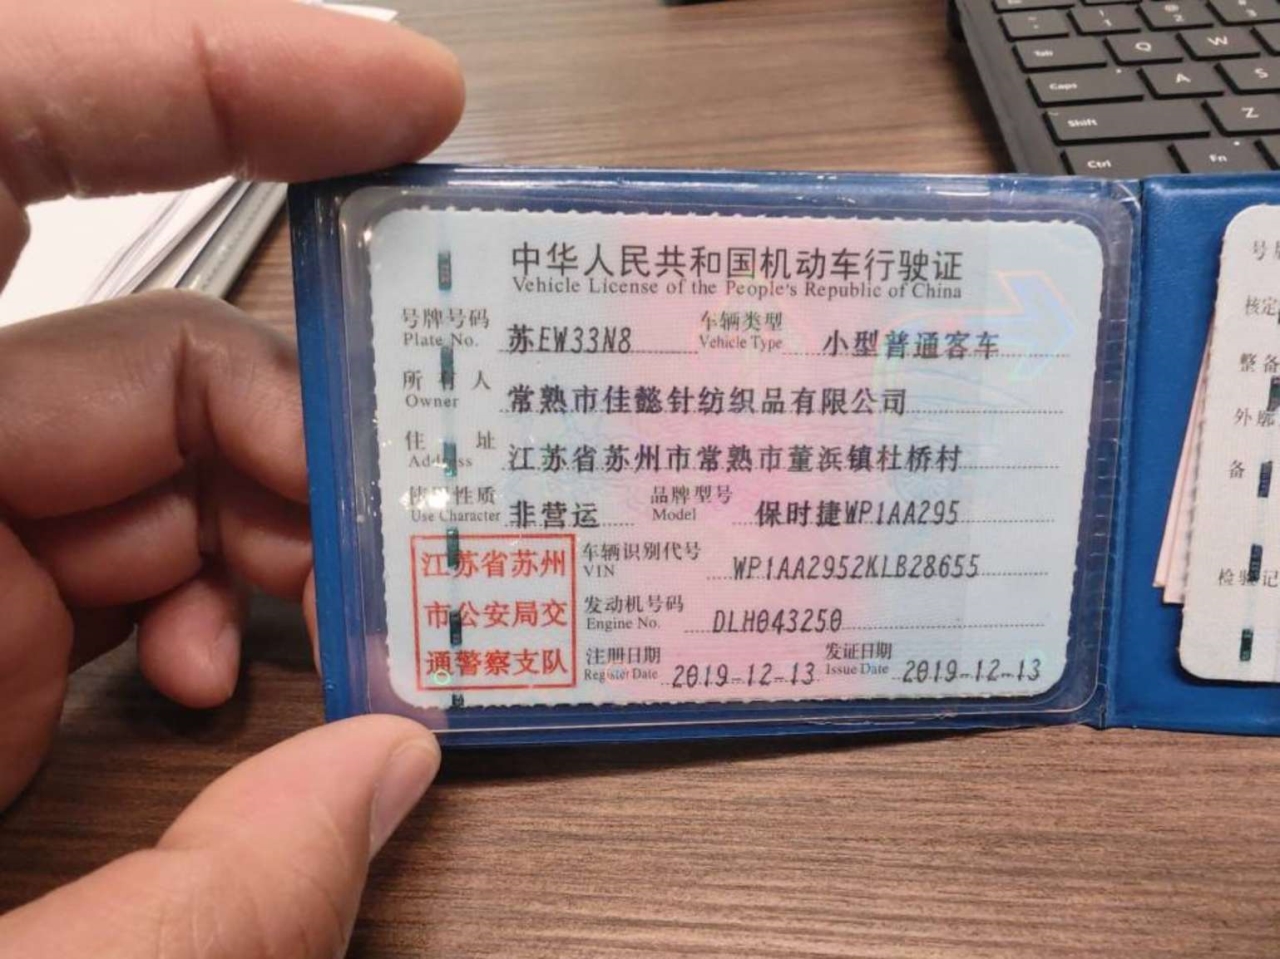 中华人民共和国机动车行驶证
Vehicle License of the People's Republic of China
号牌号码 苏EW33N8 车辆类型 小型普通客车
Plate No. Vehicle Type
所有人 常熟市佳懿针纺织品有限公司
Owner
住址 江苏省苏州市常熟市董浜镇杜桥村
Address
使用性质 非营运 品牌型号 保时捷WP1AA295
Use Character Model
车辆识别代号 WP1AA2952KLB28655
VIN
发动机号码 DLH043250
Engine No.
注册日期 2019-12-13 发证日期 2019-12-13
Register Date Issue Date
江苏省苏州
市公安局交
通警察支队
号
核定
整备
外廓
备
检验记
Tab
Q
W
Caps
A
S
Shift
Z
Ctrl
Fn